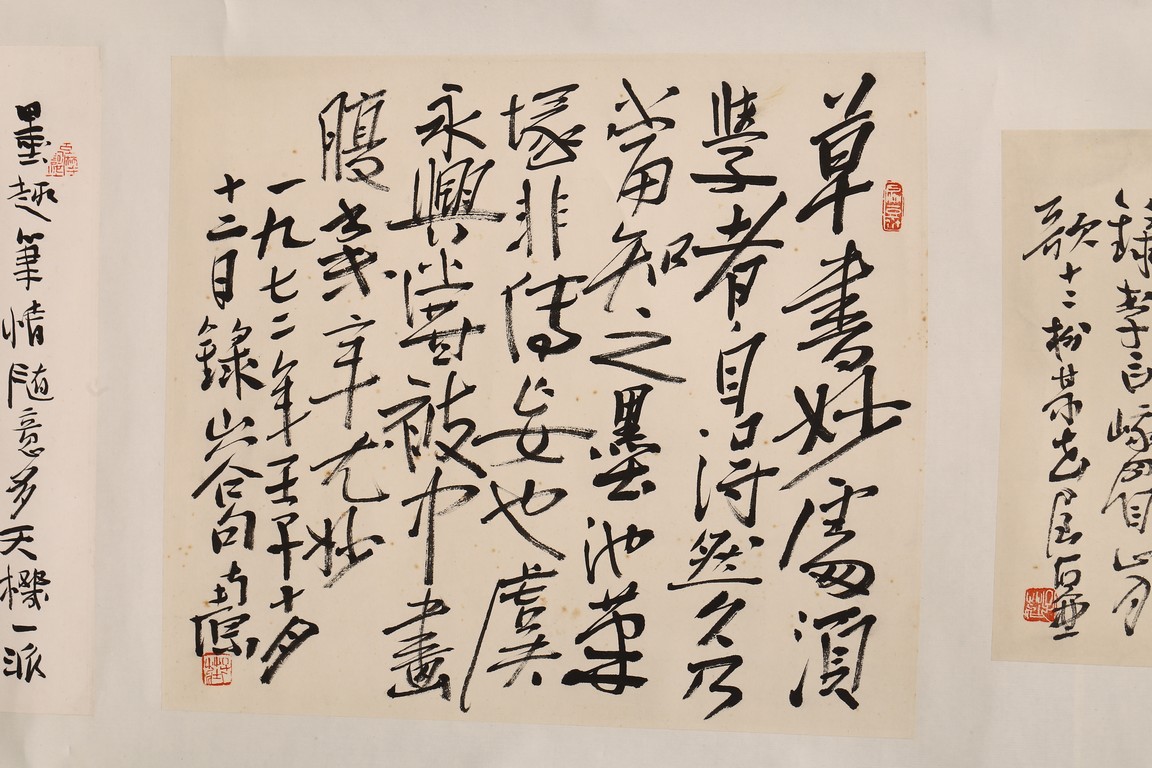 錄李白峨眉山月
歌十二松
草書妙處須
學者自得然久乃
當知之墨池筆
塚非傳妄也虞
永興嘗被中畫
腹書末年尤妙
一九七二年壬子十月
十二日錄山谷句
墨趣筆情隨意多天機一派